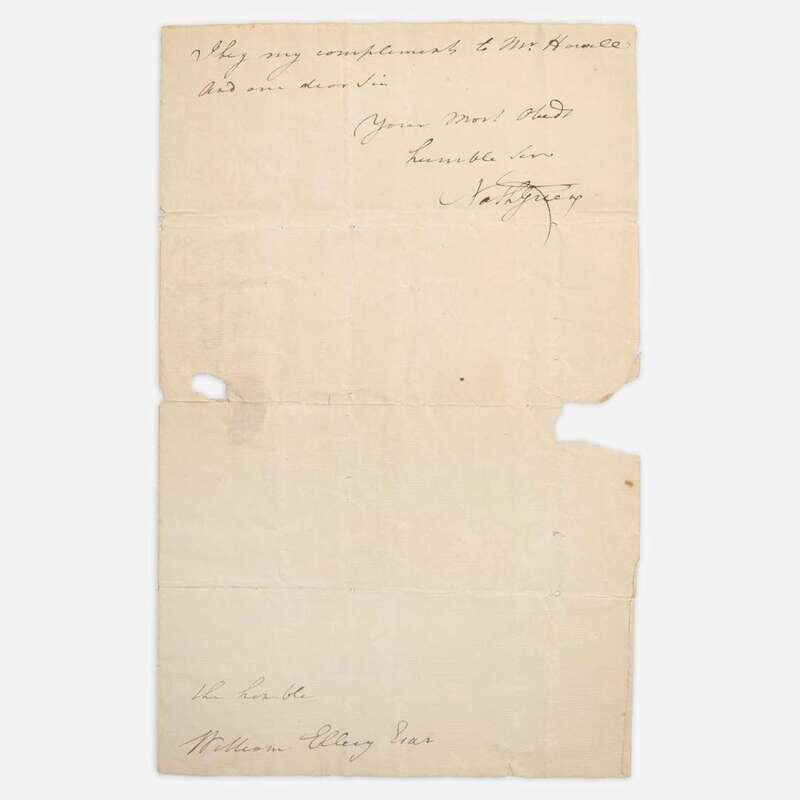 I beg my complements to Mr. Howell
And am dear Sir
Your Most Obedt
humble Serv
Nath Greene
the honble
William Ellery Esqr